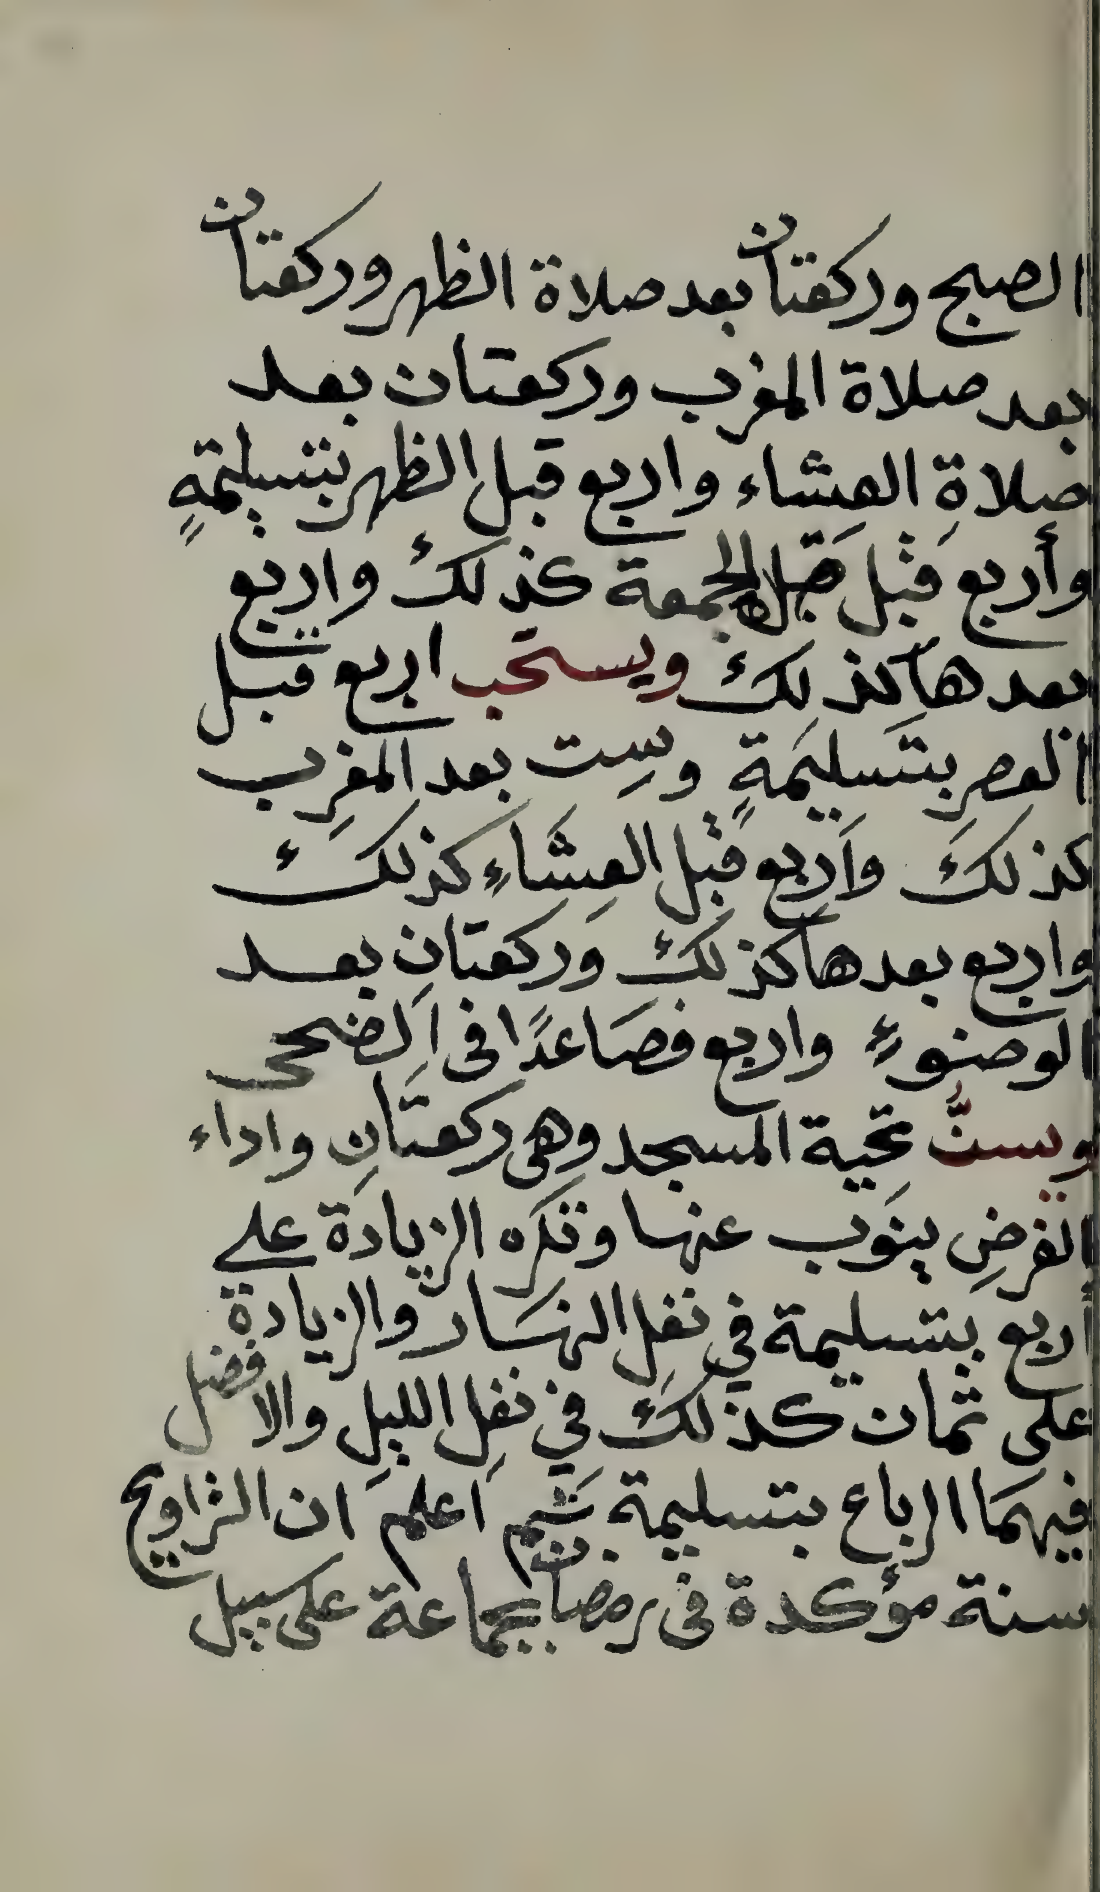 الصبح وركعتان بعد صلاة الظهر وركعتان
بعد صلاة المغرب وركعتان بعد
صلاةِ العشاء واربع قبل الظهر بتسليمةٍ
وأربع قبل الجمعة كذلك واربع
بعدها كذلك ويستحب اربع قبل
العصرِ بتَسليمَةٍ وسِت بعد المغرِب
كذلكَ وَأربع قبل العِشَاءِ كذلك
واربع بعدها كذلك وركعتانِ بعد
الوضوءِ واربع فصَاعدًا في الضحى
ويسنُّ تحية المسجد وهي ركعتَانِ واداء
الفرضِ ينوَب عنها وتكره الزيادَة على
أربع بتسليمة في نفلِ النهَار والزيادة
على ثمان كذلك في نفلِ الليل والافضل
فيهمَا الرباع بتسليمة ثم اعلم ان التراويح
سنة مؤكدة في رمضان بجماعة على سبيل